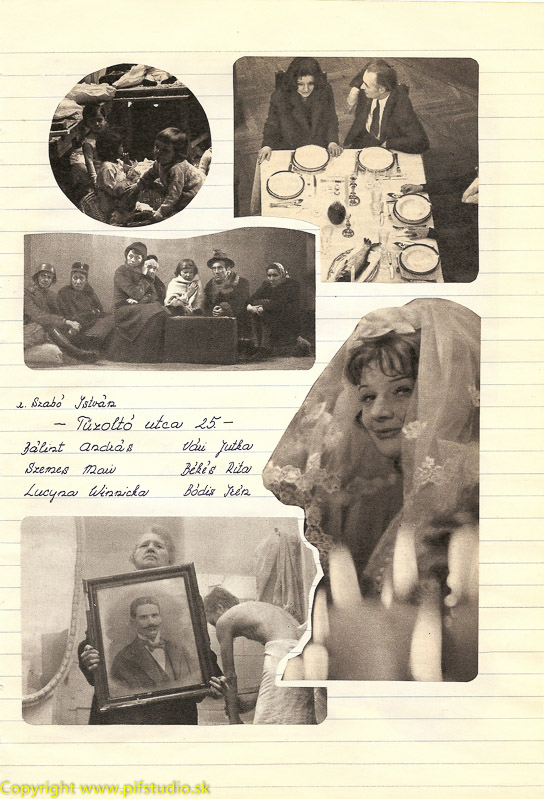 r. Szabó István
– Tűzoltó utca 25. –
Bálint András Vári Jutka
Szemes Mari Békés Rita
Lucyna Winnicka Bódis Irén
Copyright www.pifstudio.sk